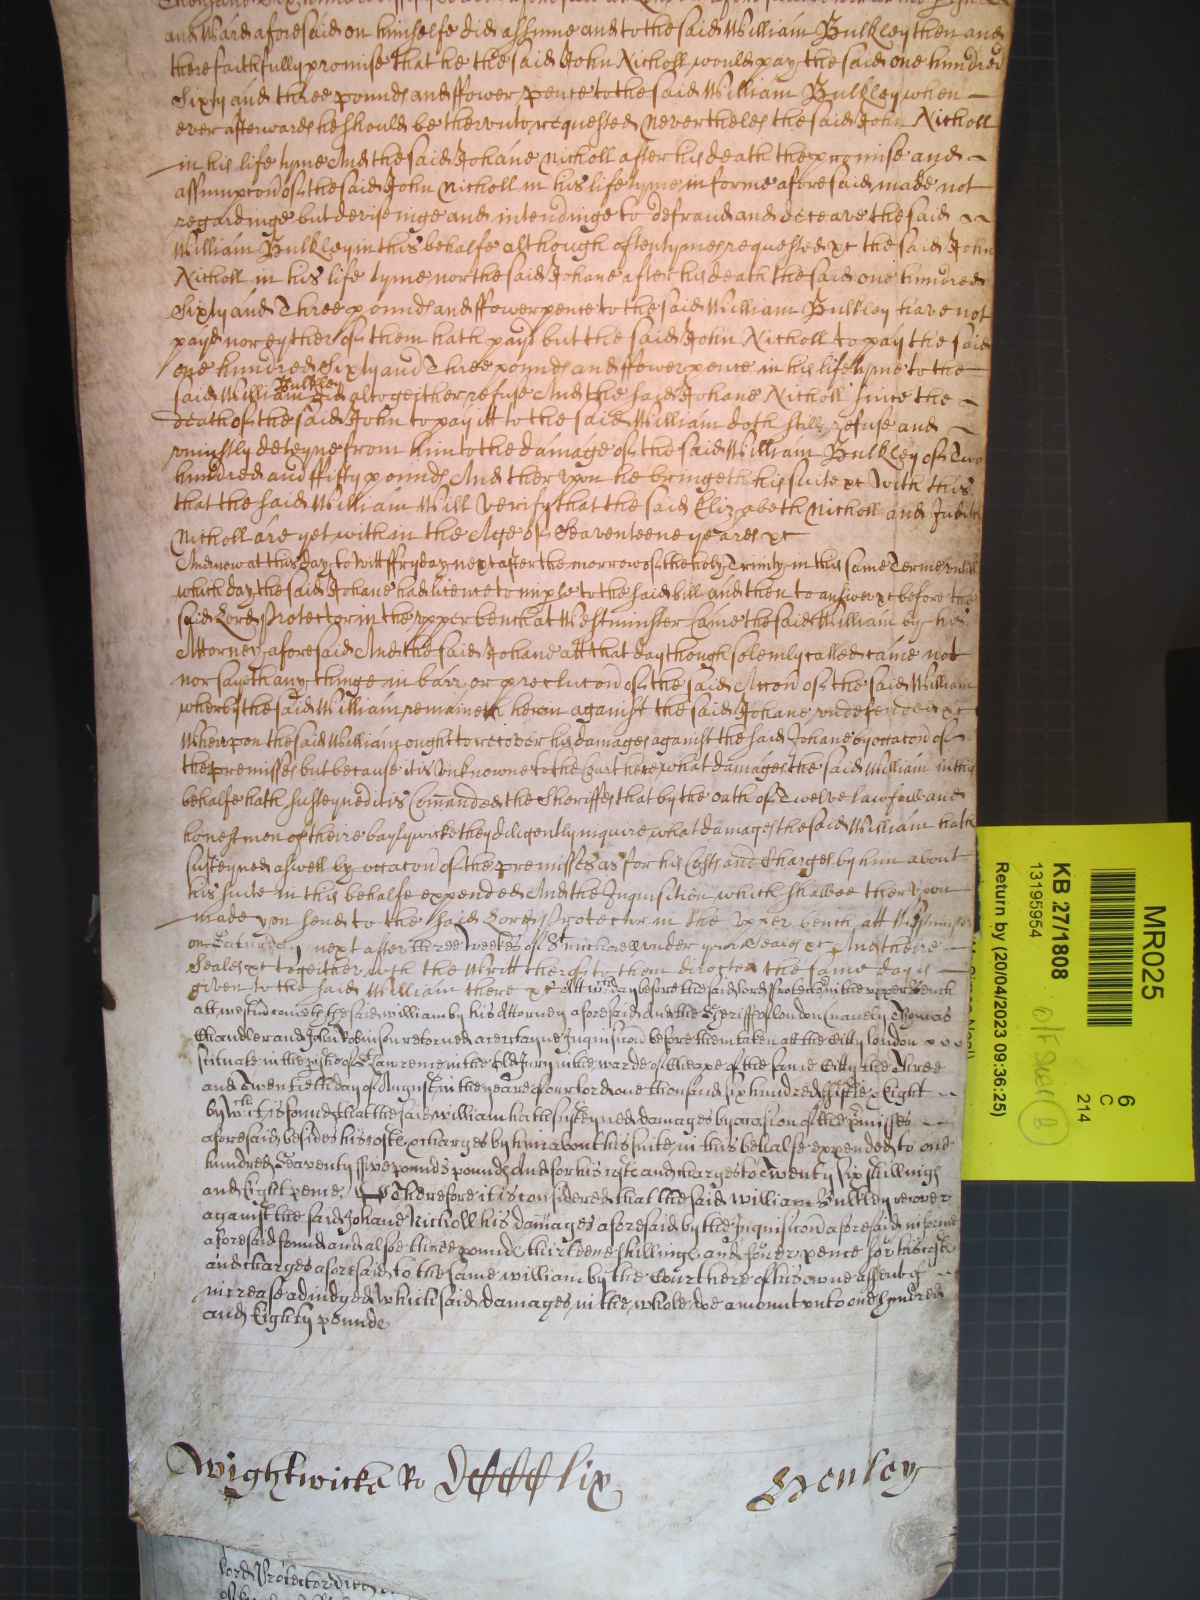 and Ward aforesaid on himselfe did assume and to the said William Bulkley then and
there faithfully promise that he the said John Nicholl would pay the said one hundred
Sixty and three pounds and ffower pence to the said William Bulkley when
ever afterwards he should be therunto requested Neverthelesse the said John Nicholl
in his life tyme And the said Johane Nicholl after his death the promise and
assumpcon of the said John Nicholl in his life tyme in forme aforesaid made not
regardinge but deviseinge and intendinge to defraud and deceave the said
William Bulkley in this behalfe although oftentymes requested &c the said John
Nicholl in his life tyme nor the said Johane after his death the said one hundred
Sixty and Three pounds and ffower pence to the said William Bulkley have not
payd nor eyther of them hath payd but the said John Nicholl to pay the said
one hundred Sixty and Three pounds and ffower pence in his life tyme to the
said William Bulkley did altogeither refuse And the said Johane Nicholl since the
death of the said John to pay itt to the said William doth still refuse and
uniustly deteyne from him to the damage of the said William Bulkley of Two
hundred and ffifty pounds And therupon he bringeth his suite &c With this
that the said William Will Verify that the said Elizabeth Nicholl and Judith
Nicholl are yet within the Age of Seaventeene yeares &c
And now at this day to Witt ffryday next after the morrow of the holy Trinity in this same Terme untill
which day the said Johane had licence to imple to the said bill and then to answer &c before the
said Lord Protector in the upper bench at Westminster Came the said William by his
Attorney aforesaid And the said Johane att that day though solemly called came not
nor sayeth any thinge in barr or preclucon of the said Accon of the said William
wherby the said William remaineth herin against the said Johane undefended &c
Wherupon the said William ought to recover his damages against the said Johane by occacon of
the premisses but because it is Unknowne to the Court here what damages the said William in this
behalfe hath susteyned it is Comanded the Sheriffes that by the oath of Twelve lawfull and
honest men of theire baylywicke they diligently inquire what damages the said William hath
susteyned aswell by occacon of the premisses as for his Costs and Charges by him about
his suite in this behalfe expended And the Inquisition which shalbee therupon
made you send to the said Lord Protector in the Upper bench att Westminster
on Saturday next after three weekes of St Michaell under your Seales &c And theire
Seales &c togeither with the Writt therof to them directed the same day is
given to the said William there &c Att wch day before the said lord Protector in the upper bench
att westm cometh the said william by his Attorney aforesaid And the Sheriffes of london namely Thomas
Chandler and John Robinson retorned a certayne Inquisicon before them taken att the Citty of london
scituate in the pish of St Lawrence in the Old Jury in the warde of Cheape of the same Citty the Three
and Twentieth day of August in the yeare of our lord one thousand six hundred ffiftie & Eight
by wch it is found that the said william hath susteyned damages by occasion of the pmisses
aforesaid besides his costs & charges by him about his suite in this behalfe expended to one
hundred Seaventy ffive pounds pounds And for his costs and charges to Twenty six shillings
and Eight pence. Therefore it is considered that the said William Bulkley recover
against the said Johane Nicholl his damages aforesaid by the Inquisicon aforesaid in forme
aforesaid found and alsoe three pounds thirteene shillings and fower pence for his costs
and charges aforesaid to the same william by the Court here of his owne assent of
increase adiudged Which said damages in the whole doe amount unto one hundred
and Eighty pounds
Wightwicke Ro lix
Henley
lord Protector
MR025
KB 27/1808
13195954
Return by (20/04/2023 09:36:25)
6
C
214